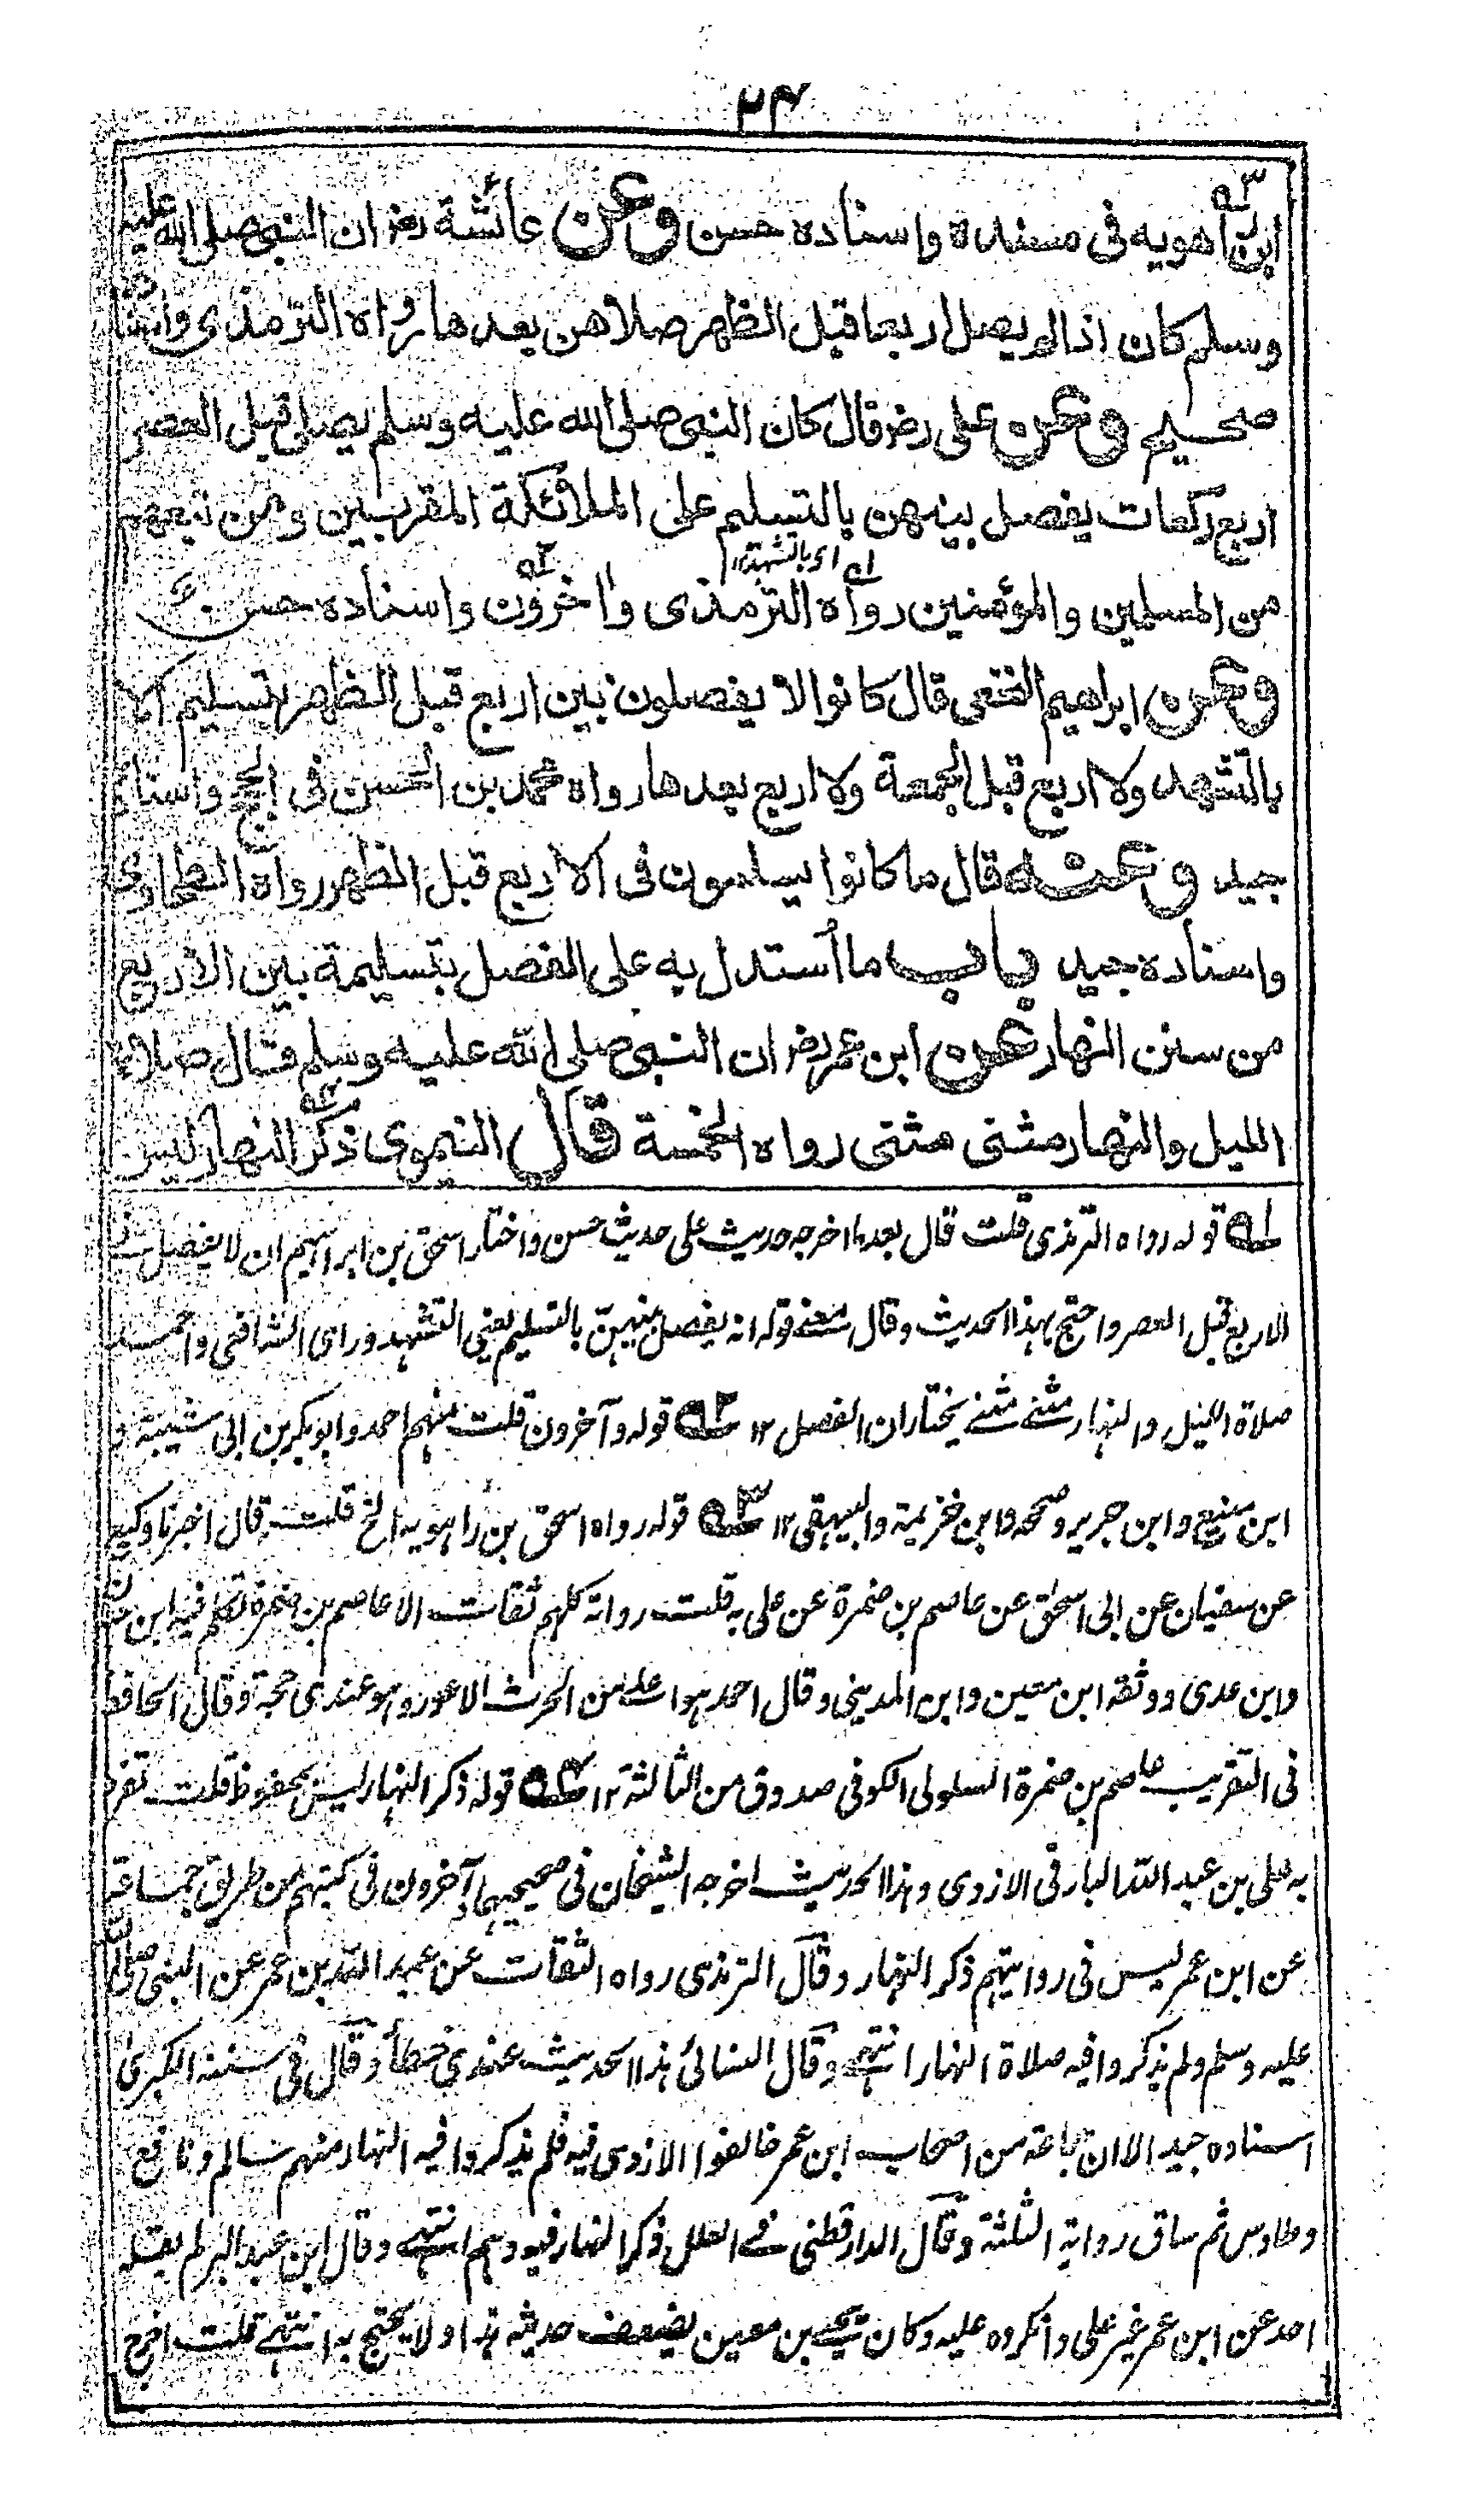 ۲۴
ابن راهويه فى مسنده واسناده حسن وعن عائشة رض ان النبى صلى الله عليه
وسلم كان اذا لم يصل اربعا قبل الظهر صلاهن بعدها رواه الترمذى واسناده
صحيح وعن على رض قال كان النبى صلى الله عليه وسلم يصلى قبل العصر
اربع ركعات يفصل بينهن بالتسليم على الملائكة المقربين ومن تبعهم
اى بالتشهد ۱۲
من المسلمين والمؤمنين رواه الترمذى واخرون واسناده حسن
وعن ابراهيم النخعى قال كانوا لا يفصلون بين اربع قبل الظهر بتسليم الا
بالتشهد ولا اربع قبل الجمعة ولا اربع بعدها رواه محمد بن الحسن فى الحجج واسناده
جيد وعنه قال ما كانوا يسلمون فى الاربع قبل الظهر رواه الطحاوى
واسناده جيد باب ما استدل به على الفصل بتسليمة بين الاربع
من سنن النهار عن ابن عمر رض ان النبى صلى الله عليه وسلم قال صلاة
الليل والنهار مثنى مثنى رواه الخمسة قال النيموى ذكر النهار ليس
۱ قوله رواه الترمذى قلت قال بعد ما اخرجه حديث على حديث حسن واختار اسحق بن ابراهيم ان لا يفصل فى
الاربع قبل العصر واحتج بهذا الحديث وقال معنى قوله انه يفصل بينهن بالتسليم يعنى التشهد ورأى الشافعى واحمد
صلاة الليل والنهار مثنى مثنى يختاران الفصل ۱۲ ۲ قوله وآخرون قلت منهم احمد وابو بكر بن ابى شيبة و
ابن منيع وابن جرير وصححه وابن خزيمة والبيهقى ۱۲ ۳ قوله رواه اسحق بن راهويه الخ قلت قال اخبرنا وكيع
عن سفيان عن ابى اسحق عن عاصم بن ضمرة عن على به قلت رواته كلهم ثقات الا عاصم بن ضمرة تكلم فيه ابن حبان
وابن عدى ووثقه ابن معين وابن المدينى وقال احمد هو اعلى من الحرث الاعور وهو عندى حجة وقال الحافظ
فى التقريب عاصم بن ضمرة السلولى الكوفى صدوق من الثالثة ۱۲ ۴ قوله ذكر النهار ليس بمحفوظ قلت تفرد
به على بن عبد الله البارقى الازدى وهذا الحديث اخرجه الشيخان فى صحيحيهما وآخرون فى كتبهم من طريق جماعة
عن ابن عمر ليس فى روايتهم ذكر النهار وقال الترمذى رواه الثقات عن عبد الله بن عمر عن النبى صلى الله
عليه وسلم ولم يذكروا فيه صلاة النهار انتهى وقال النسائى هذا الحديث عندى خطأ وقال فى سننه الكبرى
اسناده جيد الا ان جماعة من اصحاب ابن عمر خالفوا الازدى فيه فلم يذكروا فيه النهار منهم سالم ونافع
وطاوس ثم ساق رواية الثلثة وقال الدارقطنى فى العلل ذكر النهار فيه وهم انتهى وقال ابن عبد البر لم يقله
احد عن ابن عمر غير على وانكروه عليه وكان يحيى بن معين يضعف حديثه هذا ولا يحتج به انتهى قلت اخرج